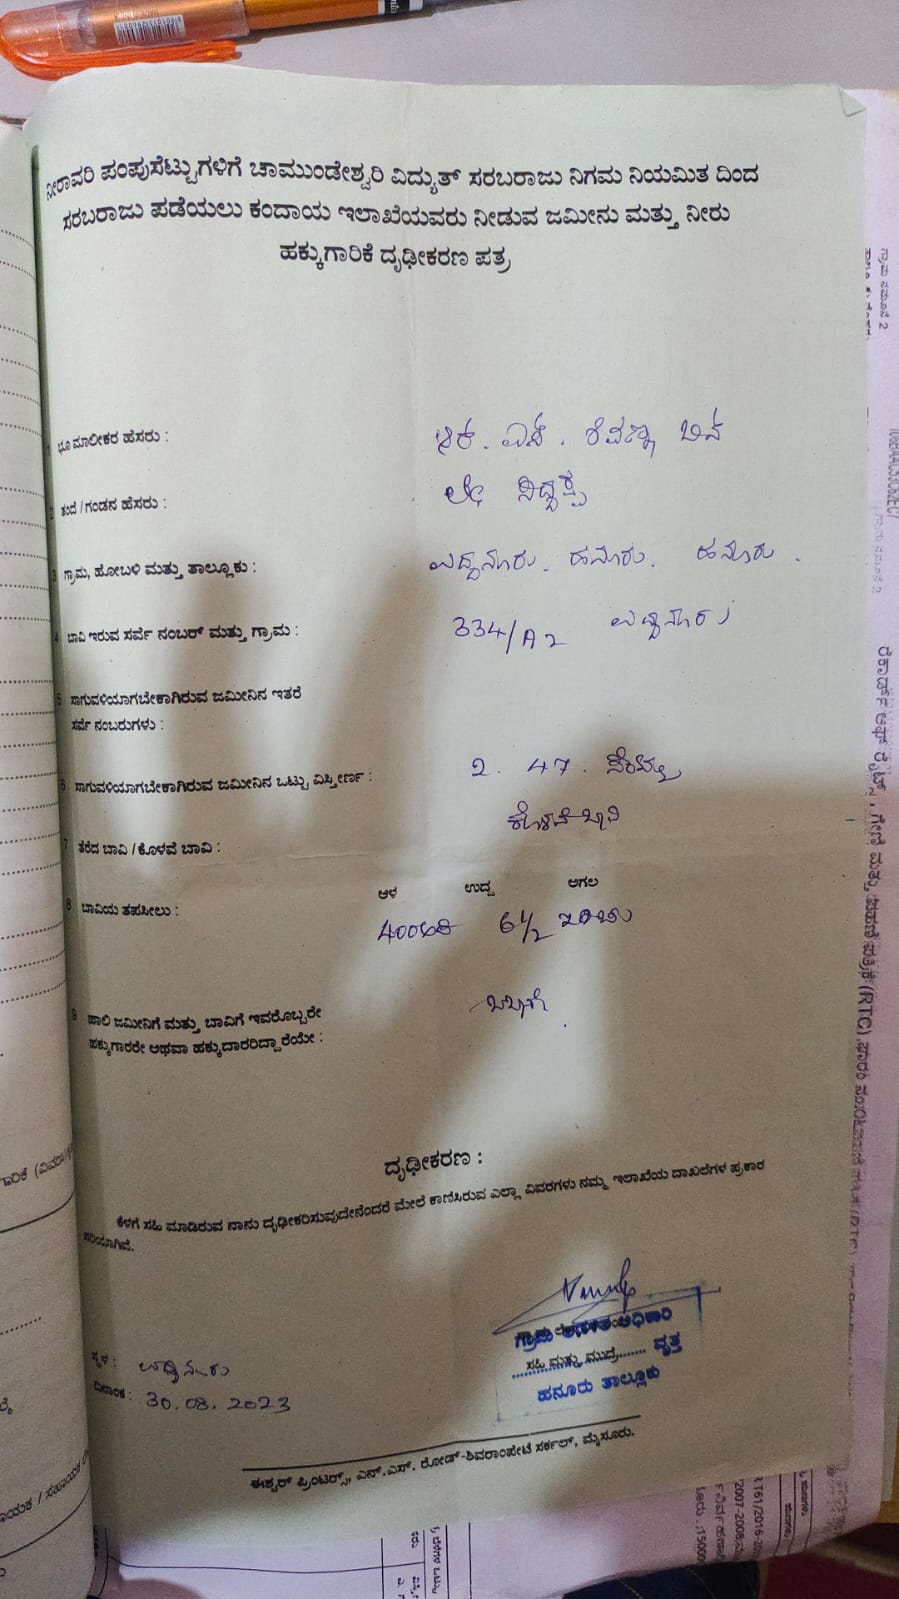 ನೀರಾವರಿ ಪಂಪುಸೆಟ್ಟುಗಳಿಗೆ ಚಾಮುಂಡೇಶ್ವರಿ ವಿದ್ಯುತ್ ಸರಬರಾಜು ನಿಗಮ ನಿಯಮಿತ ದಿಂದ
ಸರಬರಾಜು ಪಡೆಯಲು ಕಂದಾಯ ಇಲಾಖೆಯವರು ನೀಡುವ ಜಮೀನು ಮತ್ತು ನೀರು
ಹಕ್ಕುಗಾರಿಕೆ ದೃಢೀಕರಣ ಪತ್ರ
1 ಭೂ ಮಾಲೀಕರ ಹೆಸರು : ಆರ್. ಎಸ್. ರೆವಣ್ಣ ಬಿನ್
2 ತಂದೆ / ಗಂಡನ ಹೆಸರು : ಲೇ
3 ಗ್ರಾಮ, ಹೋಬಳಿ ಮತ್ತು ತಾಲ್ಲೂಕು : ಹನೂರು. ಹನೂರು.
4 ಬಾವಿ ಇರುವ ಸರ್ವೆ ನಂಬರ್ ಮತ್ತು ಗ್ರಾಮ : 334/A2
5 ಸಾಗುವಳಿಯಾಗಬೇಕಾಗಿರುವ ಜಮೀನಿನ ಇತರೆ
ಸರ್ವೆ ನಂಬರುಗಳು :
6 ಸಾಗುವಳಿಯಾಗಬೇಕಾಗಿರುವ ಜಮೀನಿನ ಒಟ್ಟು ವಿಸ್ತೀರ್ಣ : 2. 47.
7 ತೆರೆದ ಬಾವಿ / ಕೊಳವೆ ಬಾವಿ : ಕೊಳವೆ ಬಾವಿ
ಆಳ ಉದ್ದ ಅಗಲ
8 ಬಾವಿಯ ತಪಸೀಲು : 400ಅಡಿ 6½ ಇಂಚು
9 ಹಾಲಿ ಜಮೀನಿಗೆ ಮತ್ತು ಬಾವಿಗೆ ಇವರೊಬ್ಬರೇ
ಹಕ್ಕುಗಾರರೇ ಅಥವಾ ಹಕ್ಕುದಾರರಿದ್ದಾರೆಯೇ :
ದೃಢೀಕರಣ :
ಕೆಳಗೆ ಸಹಿ ಮಾಡಿರುವ ನಾನು ದೃಢೀಕರಿಸುವುದೇನೆಂದರೆ ಮೇಲೆ ಕಾಣಿಸಿರುವ ಎಲ್ಲಾ ವಿವರಗಳು ನಮ್ಮ ಇಲಾಖೆಯ ದಾಖಲೆಗಳ ಪ್ರಕಾರ
ಸರಿಯಾಗಿವೆ.
ಗ್ರಾಮ ಆಡಳಿತ ಅಧಿಕಾರಿ
ಸಹಿ ಮತ್ತು ಮುದ್ರೆ ....... ವೃತ್ತ
ಹನೂರು ತಾಲ್ಲೂಕು
ಸ್ಥಳ :
ದಿನಾಂಕ : 30.08.2023
ಈಶ್ವರ್ ಪ್ರಿಂಟರ್ಸ್, ಎನ್.ಎಸ್. ರೋಡ್-ಶಿವರಾಂಪೇಟೆ ಸರ್ಕಲ್, ಮೈಸೂರು.